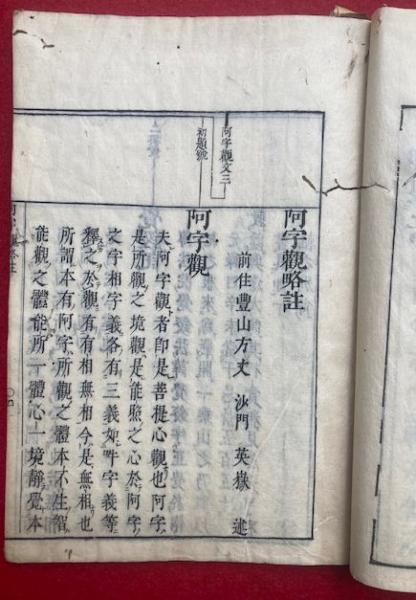 阿字觀略註
前住豐山方丈　沙門　英嶽　述
阿字觀文三
初題號
阿字觀
夫阿字觀者即是菩提心觀也阿字
是所觀之境觀是能照之心於阿字
之字相字義各有三義如吽字義等
釋之於觀有有相無相今是無相也
所謂本有阿字所觀之體本不生智
能觀之體能所一體心一境靜覺本